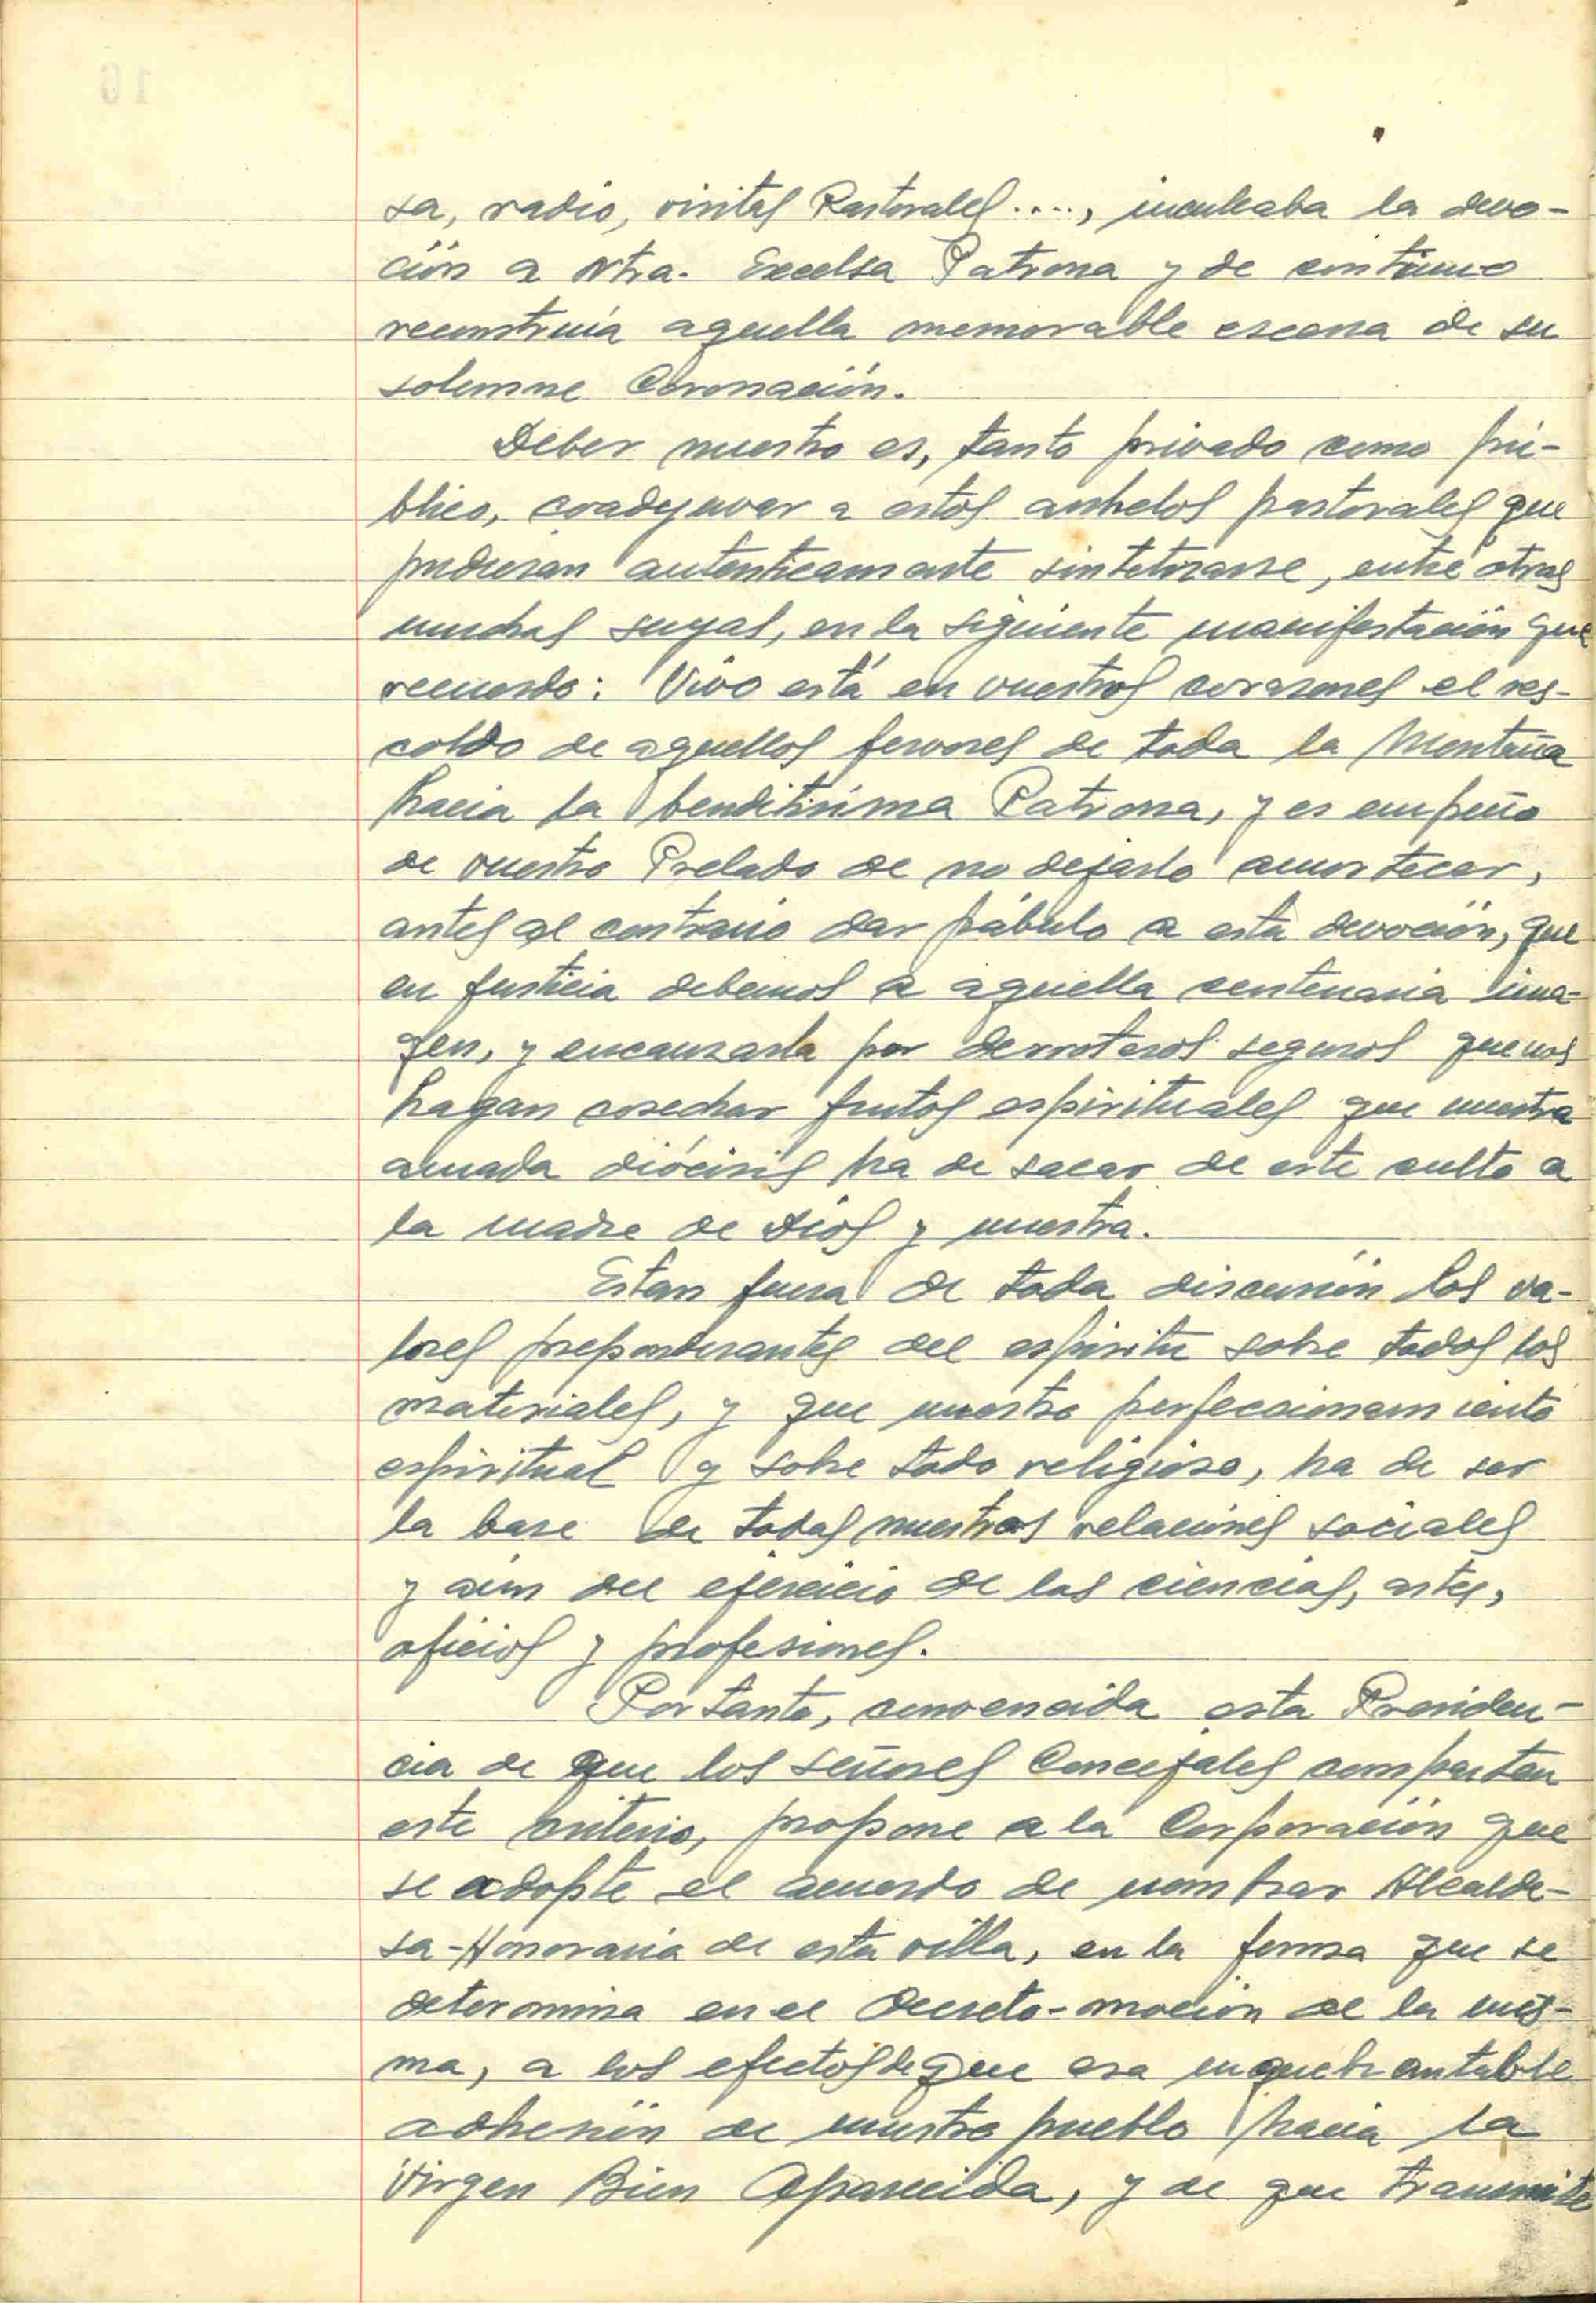 sa, radio, visitas Pastorales...., inculcaba la devo-
ción a Ntra. Excelsa Patrona y de contínuo
reconstruía aquella memorable escena de su
solemne Coronación.
Deber nuestro es, tanto privado como pú-
blico, coadyuvar a estos anhelos pastorales que
pudieran autenticamente sintetizarse, entre otras
muchas suyas, en la siguiente manifestación que
recuerdo: Vivo está en vuestros corazones el res-
coldo de aquellos fervores de toda la Montaña
hacia la benditísima Patrona, y es empeño
de vuestro Prelado de no dejarlo amortecer,
antes al contrario dar pábulo a esta devoción, que
en justicia debemos a aquella centenaria ima-
gen, y encauzarla por derroteros seguros que nos
hagan cosechar frutos espirituales que nuestra
amada diócisis ha de sacar de este culto a
la madre de Dios y nuestra.
Estan fuera de toda discusión los va-
lores preponderantes del espíritu sobre todos los
materiales, y que nuestro perfeccionamiento
espiritual y sobre todo religioso, ha de ser
la base de todas nuestras relaciones sociales
y aún del ejercicio de las ciencias, artes,
oficios y profesiones.
Por tanto, convencida esta Presiden-
cia de que los señores Concejales comparten
este criterio, propone a la Corporación que
se adopte el acuerdo de nombrar Alcalde-
sa-Honoraria de esta villa, en la forma que se
determina en el Decreto-moción de la mis-
ma, a los efectos de que esa inquebrantable
adhesión de nuestro pueblo hacia la
Virgen Bien Aparecida, y de que transmite
16